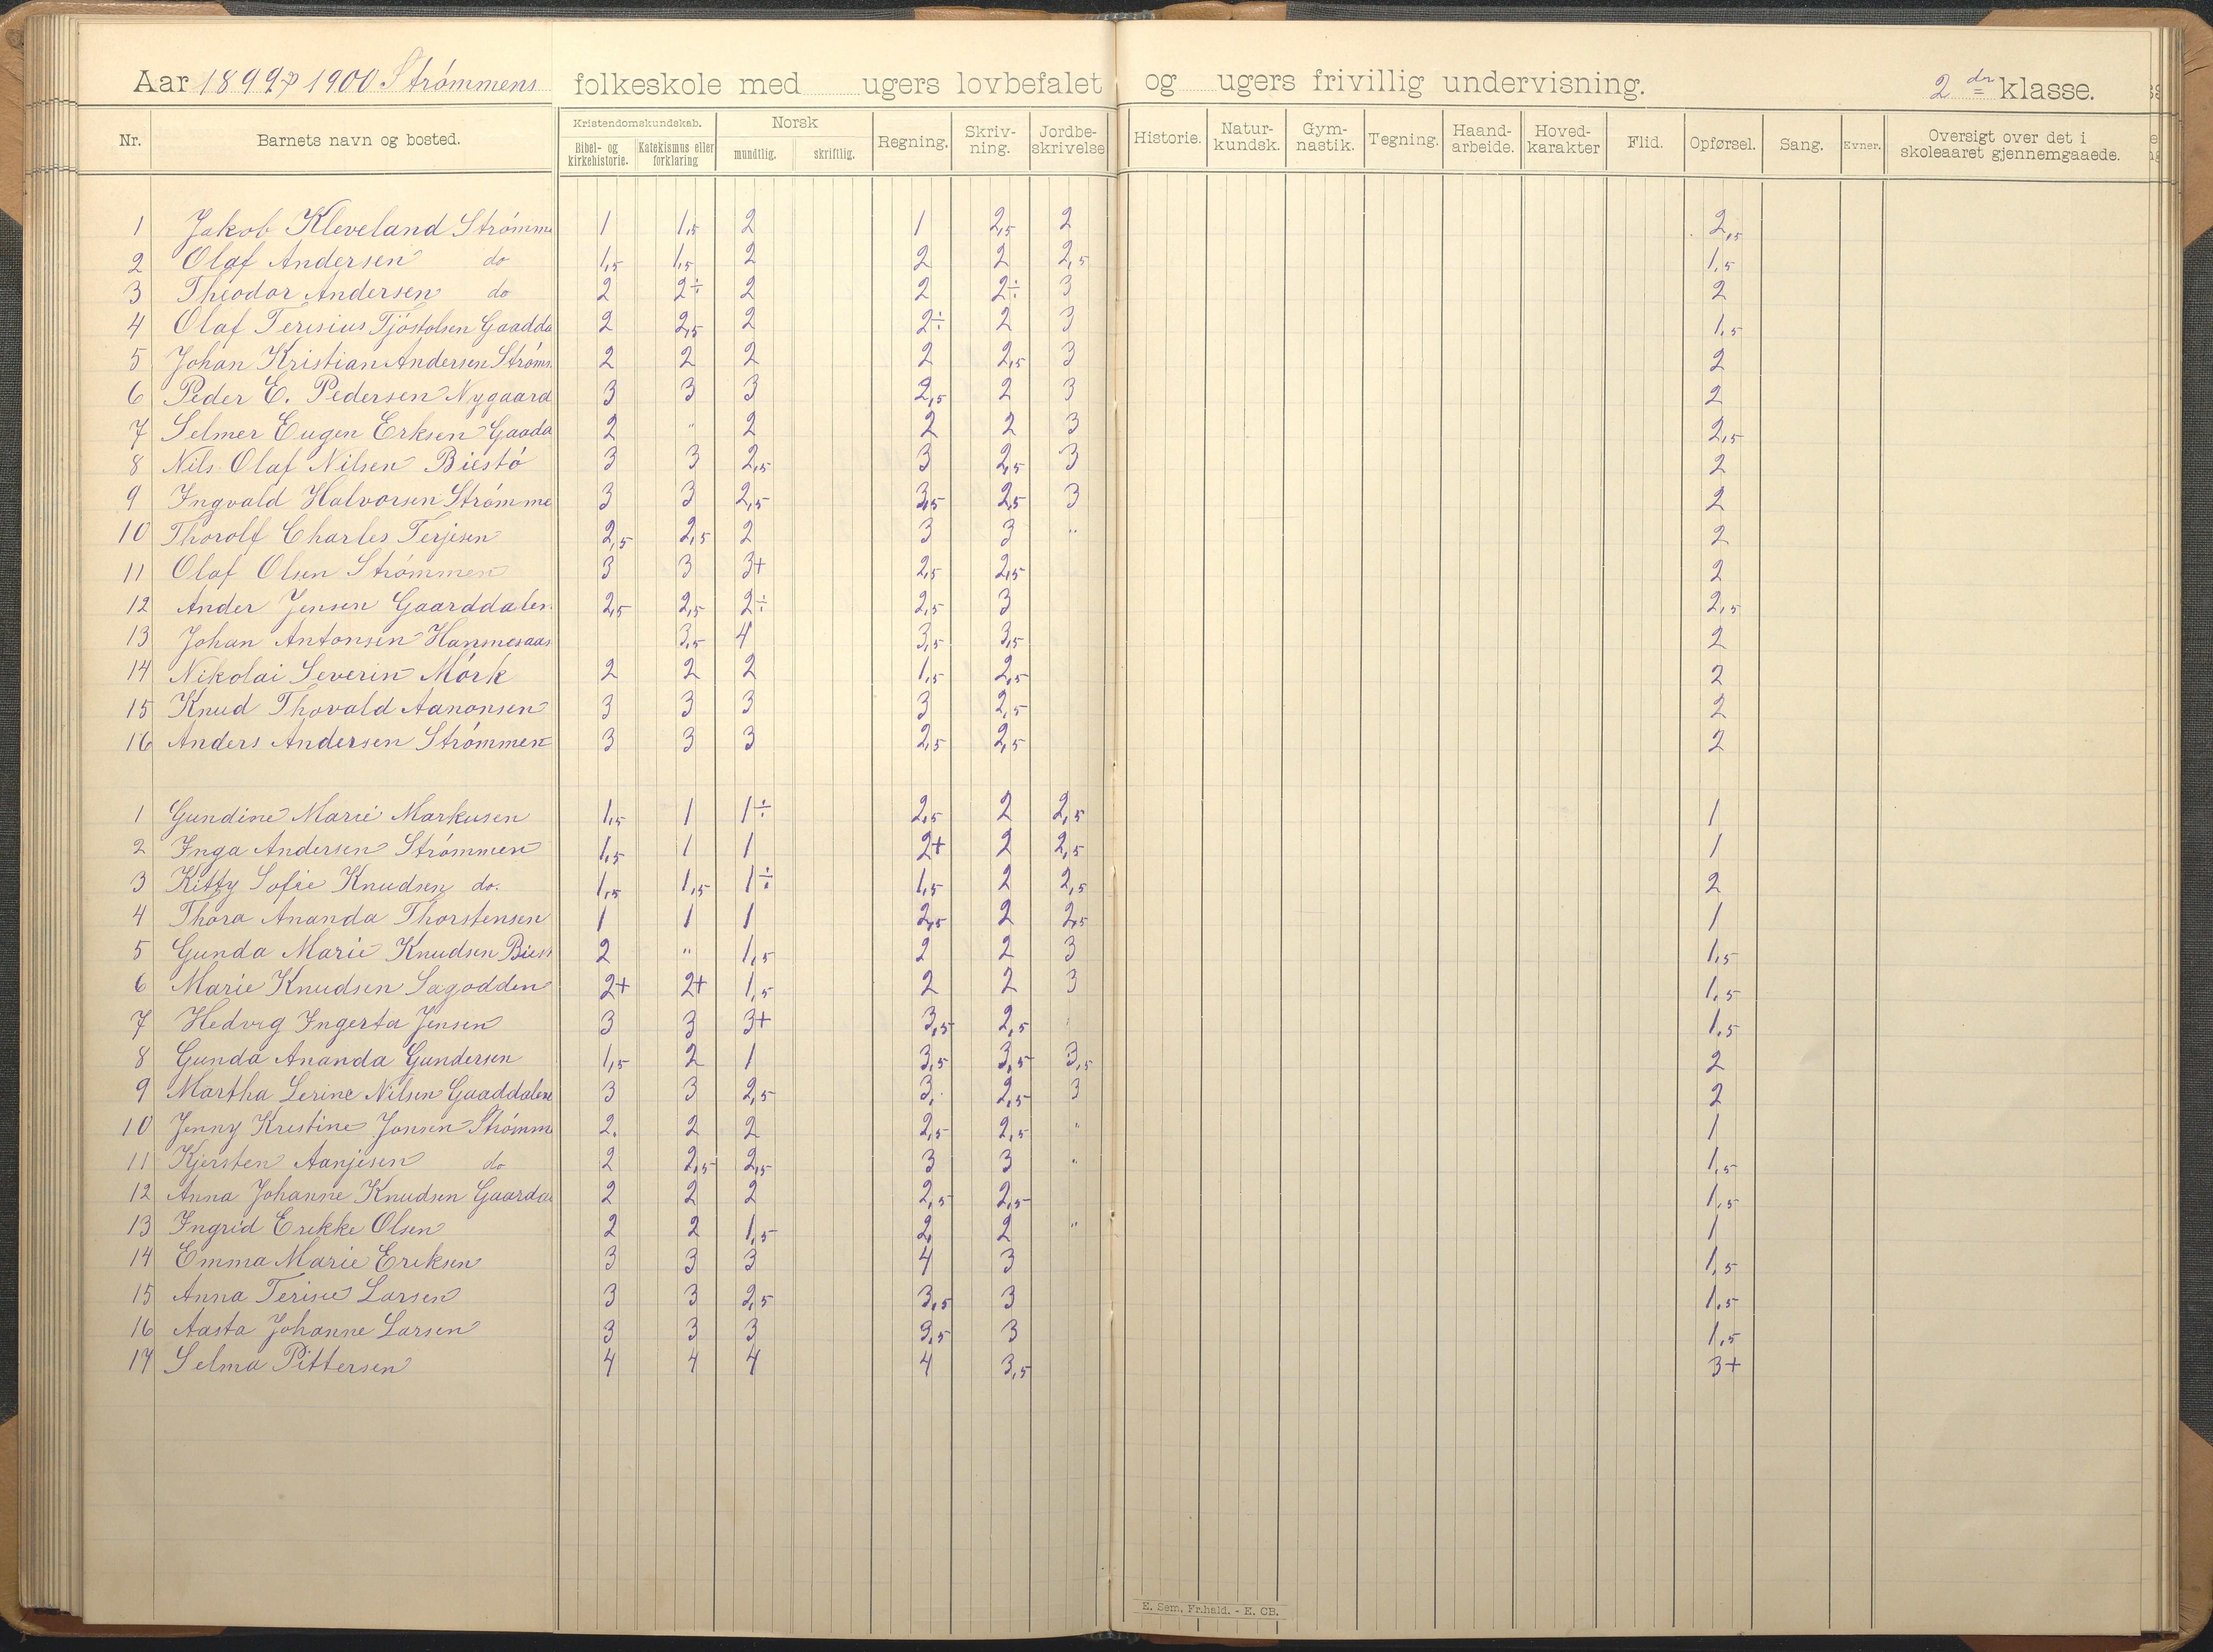 Aar 1899 & 1900 Strömmens folkeskole med ugers lovbefalet og ugers frivillig undervisning. 2 dr klasse.
Nr. Barnets navn og bosted. Kristendomskundskab. Bibel- og kirkehistorie. Katekismus eller forklaring Norsk mundtlig. skriftlig. Regning. Skriv-ning. Jordbe-skrivelse Historie. Natur-kundsk. Gym-nastik. Tegning. Haand-arbeide. Hoved-karakter Flid. Opførsel. Sang. Evner. Oversigt over det i skoleaaret gjennemgaaede.
1 Jakob Kleveland Strömme 1 1,5 2 1 2,5 2 2,5
2 Olaf Andersen do 1,5 1,5 2 2 2 2,5 1,5
3 Theodor Andersen do 2 2÷ 2 2 2÷ 3 2
4 Olaf Terisius Tjöstolsen Gaadda 2 2,5 2 2÷ 2 3 1,5
5 Johan Kristian Andersen Ströms 2 2 2 2 2,5 3 2
6 Peder E. Pedersen Nygaard 3 3 3 2,5 2 3 2
7 Selmer Eugen Erksen Gaada 2 " 2 2 2 3 2,5
8 Nils Olaf Nilsen Biestö 3 3 2,5 3 2,5 3 2
9 Ingvald Halvorsen Strömme 3 3 2,5 3,5 2,5 3 2
10 Thorolf Charles Terjesen 2,5 2,5 2 3 3 " 2
11 Olaf Olsen Strömmen 3 3 3+ 2,5 2,5 2
12 Ander Jensen Gaarddalen 2,5 2,5 2÷ 2,5 3 2,5
13 Johan Antonsen Hannesaas 3,5 4 3,5 3,5 2
14 Nikolai Severin Mörk 2 2 2 1,5 2,5 2
15 Knud Thovald Aanonsen 3 3 3 3 2,5 2
16 Anders Andersen Strömmen 3 3 3 2,5 2,5 2
1 Gundine Marie Markusen 1,5 1 1÷ 2,5 2 2,5 1
2 Inga Andersen Strömmen 1,5 1 1 2+ 2 2,5 1
3 Kitty Sofie Knudsen do. 1,5 1,5 1÷ 1,5 2 2,5 2
4 Thora Ananda Thorstensen 1 1 1 2,5 2 2,5 1
5 Gunda Marie Knudsen Biest 2 " 1,5 2 2 3 1,5
6 Marie Knudsen Sagodden 2+ 2+ 1,5 2 2 3 1,5
7 Hedvig Ingerta Jensen 3 3 3+ 3,5 2,5 1,5
8 Gunda Ananda Gundersen 1,5 2 1 3,5 3,5 3,5 2
9 Martha Serine Nilsen Gaaddalene 3 3 2,5 3. 2,5 3 2
10 Jenny Kristine Jonsen Strömme 2. 2 2 2,5 2,5 " 1
11 Kjersten Aanjesen do 2 2,5 2,5 3 3 " 1,5
12 Anna Johanne Knudsen Gaarda 2 2 2 2,5 2,5 1,5
13 Ingrid Erekke Olsen 2 2 1,5 2, 2 " 1
14 Emma Marie Eriksen 3 3 3 4 3 1,5
15 Anna Terise Larsen 3 3 2,5 3,5 3 1,5
16 Aasta Johanne Larsen 3 3 3 3,5 3 1,5
17 Selma Pittersen 4 4 4 4 3,5 3+
E. Sem, Fr.hald. - E. CB.